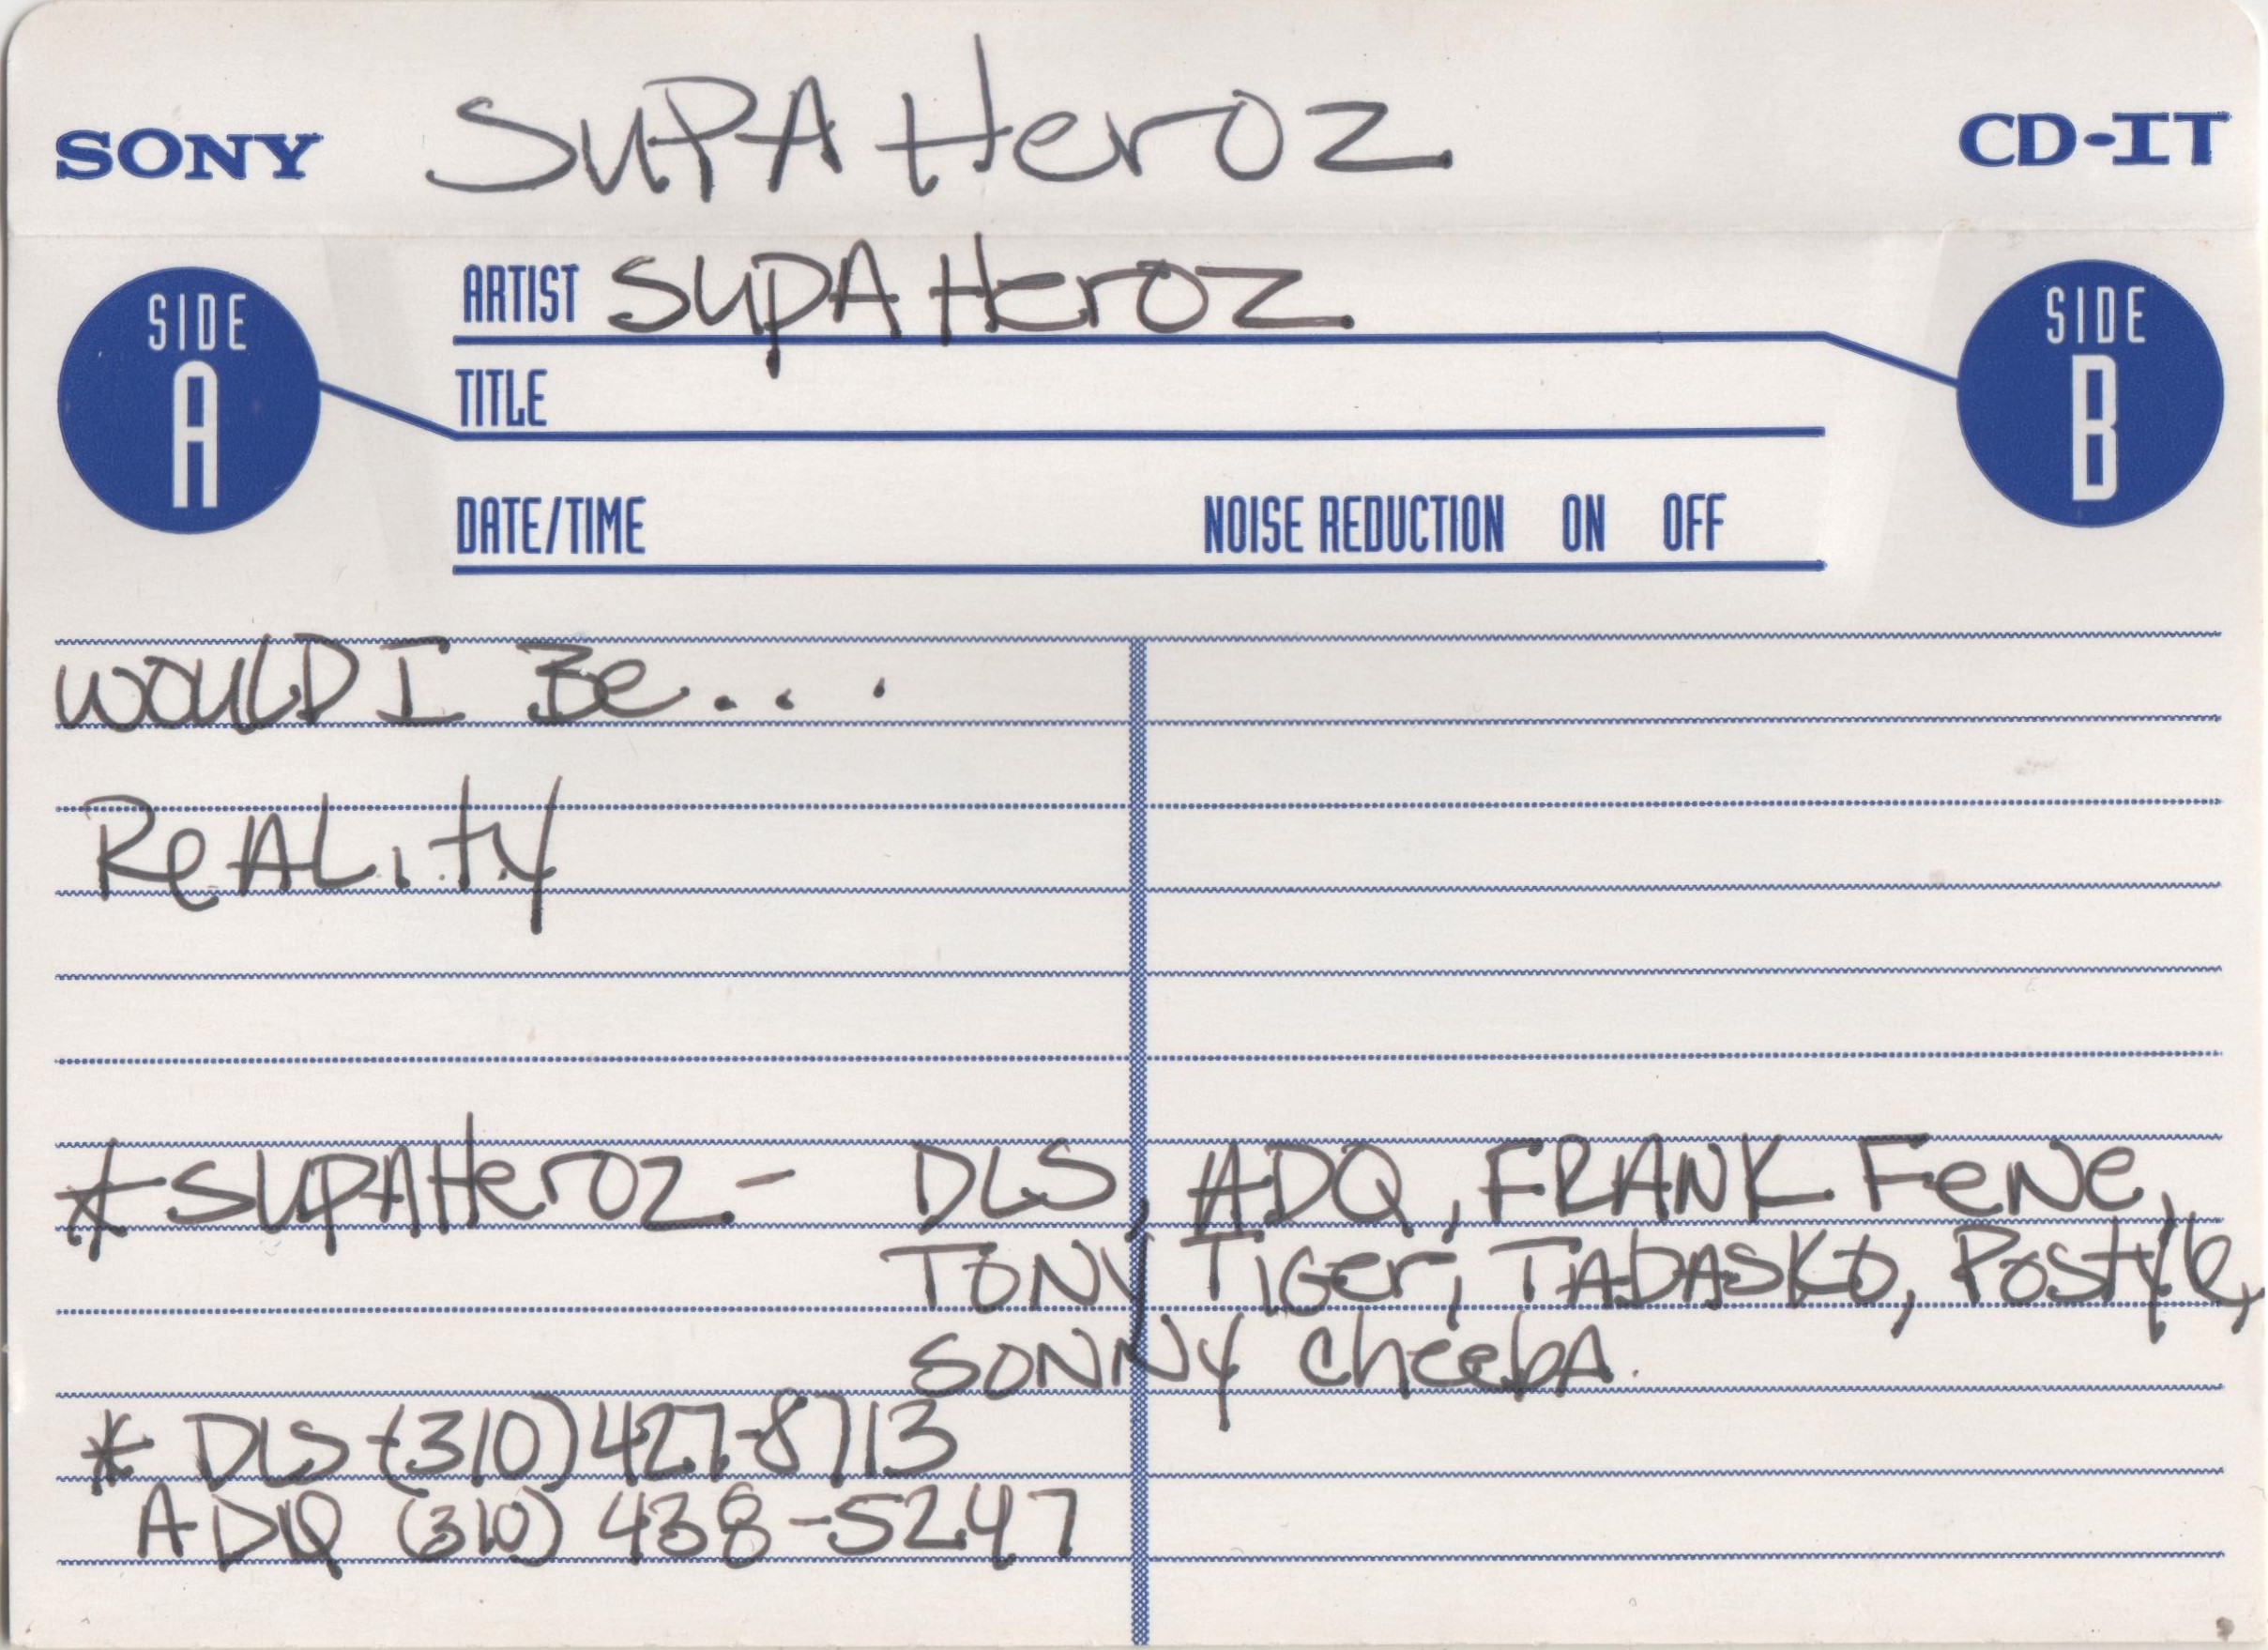 SONY SUPA HEROZ CD-IT
SIDE A
ARTIST SUPA HEROZ
SIDE B
TITLE
DATE/TIME NOISE REDUCTION ON OFF
WOULD I Be....
ReALity
*SUPAHeroz- DLS, ADQ, FRANK FeNe,
TONY TIGer, TABASKO, PostYle,
SONNY CheebA.
* DLS (310)427-8713
ADQ (310) 438-5247